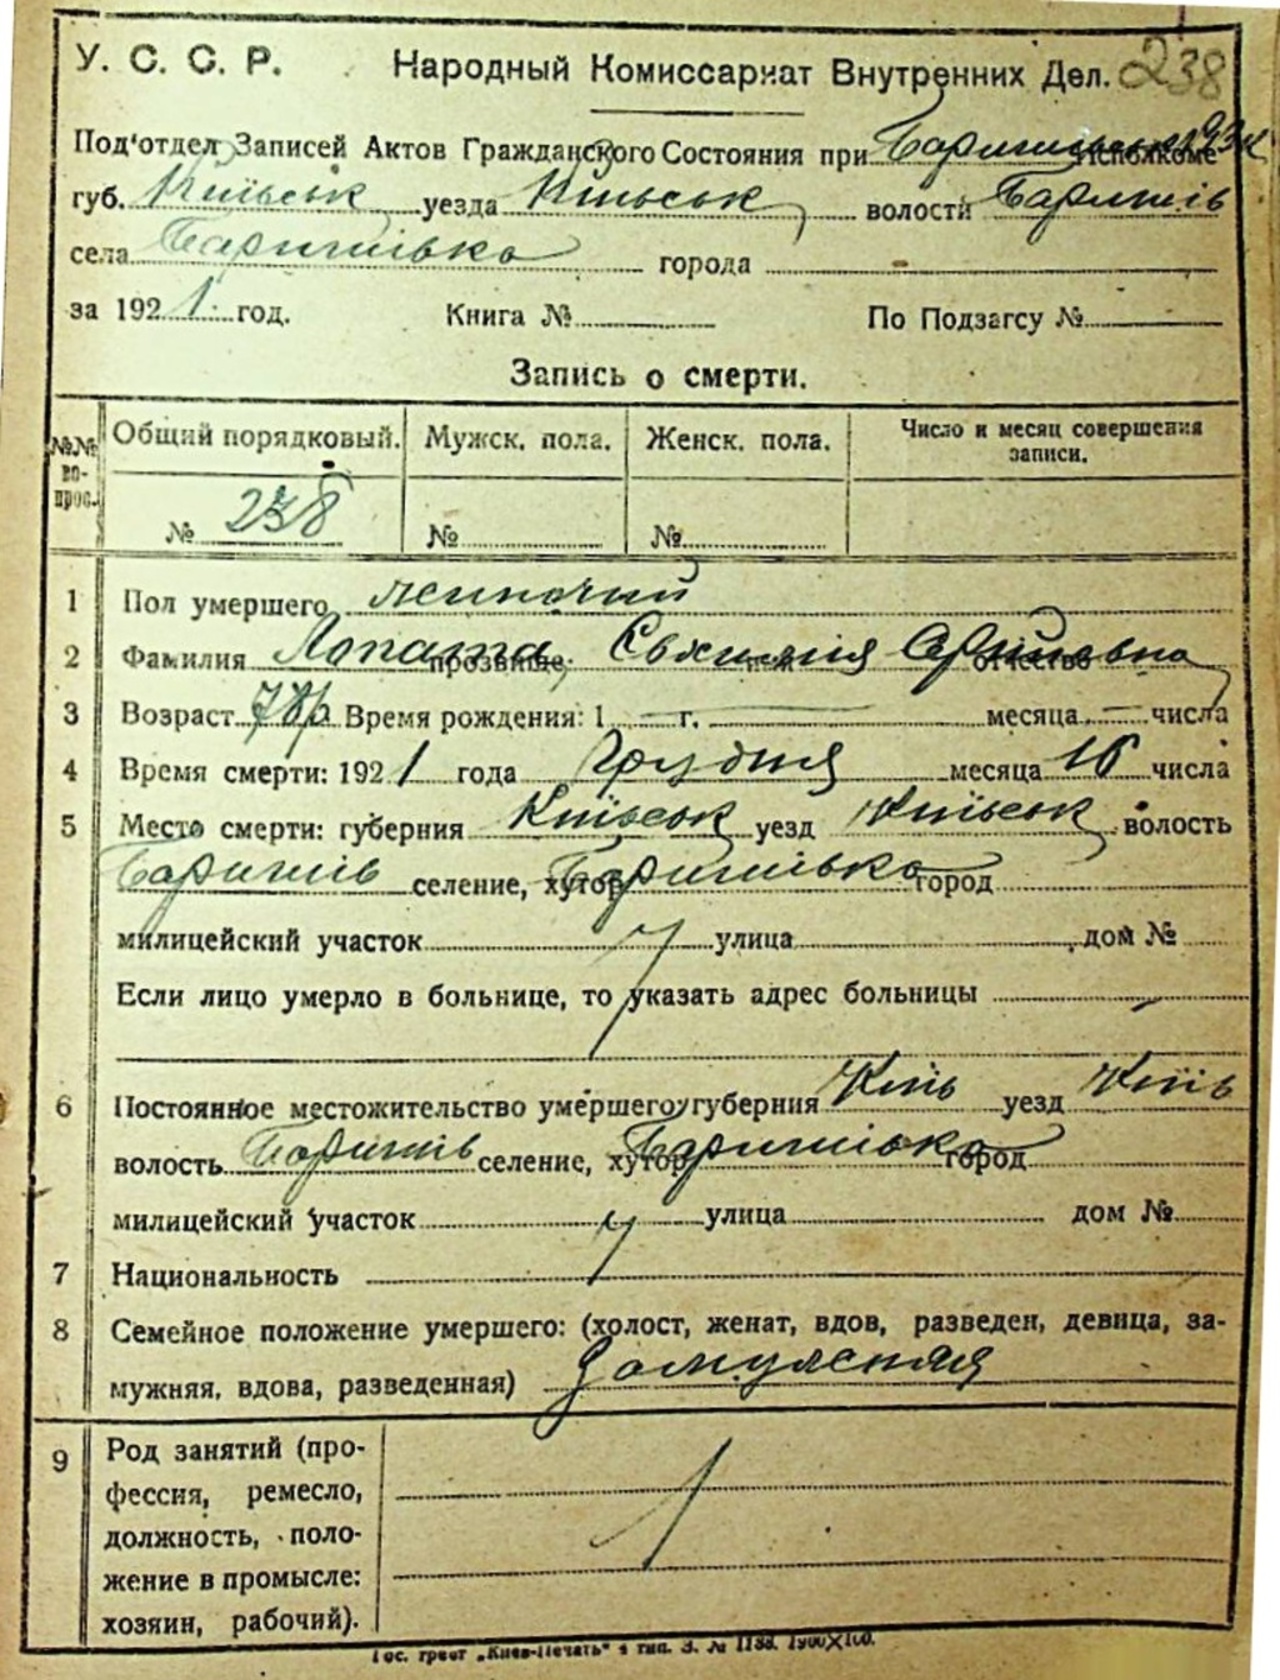 У. С. С. Р. Народный Комиссариат Внутренних Дел. 238
Под'отдел Записей Актов Гражданского Состояния при Исполкоме
губ. Київськ уезда Київськ волости Баришів
села Баришівка города
за 1921 год. Книга № По Подзагсу №
Запись о смерти.
№№ вопрос. Общий порядковый. Мужск. пола. Женск. пола. Число и месяц совершения записи.
№ 238 № №
1 Пол умершего жиночий
2 Фамилия Лопата, прозвище, имя Евхимия отчество
3 Возраст 78р Время рождения: 1 — г. месяца — числа
4 Время смерти: 1921 года Грудня месяца 16 числа
5 Место смерти: губерния Київськ уезд Київськ волость
Баришів селение, хутор Баришівка город
милицейский участок улица дом №
Если лицо умерло в больнице, то указать адрес больницы
6 Постоянное местожительство умершего: губерния Київ уезд Київ
волость Баришів селение, хутор Баришівка город
милицейский участок улица дом №
7 Национальность
8 Семейное положение умершего: (холост, женат, вдов, разведен, девица, за-
мужняя, вдова, разведенная) Замужняя
9 Род занятий (про-
фессия, ремесло,
должность, поло-
жение в промысле:
хозяин, рабочий).
Гос. трест „Киев-Печать“ 4 тип. З. № 1188. 1900X100.